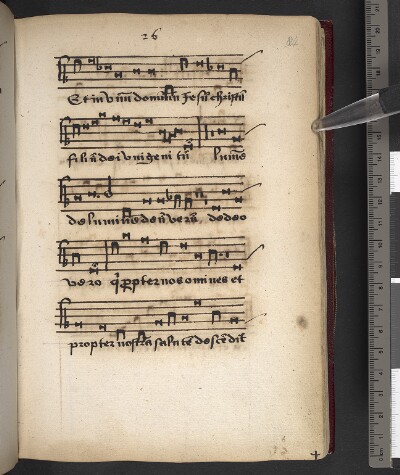 26
Et in vnū dominū Jesū christū
filiū dei vnigenitū lumē
de lumine deū verū de deo
vero q̄ propter nos omines et
propter nostrā salutē descēdit